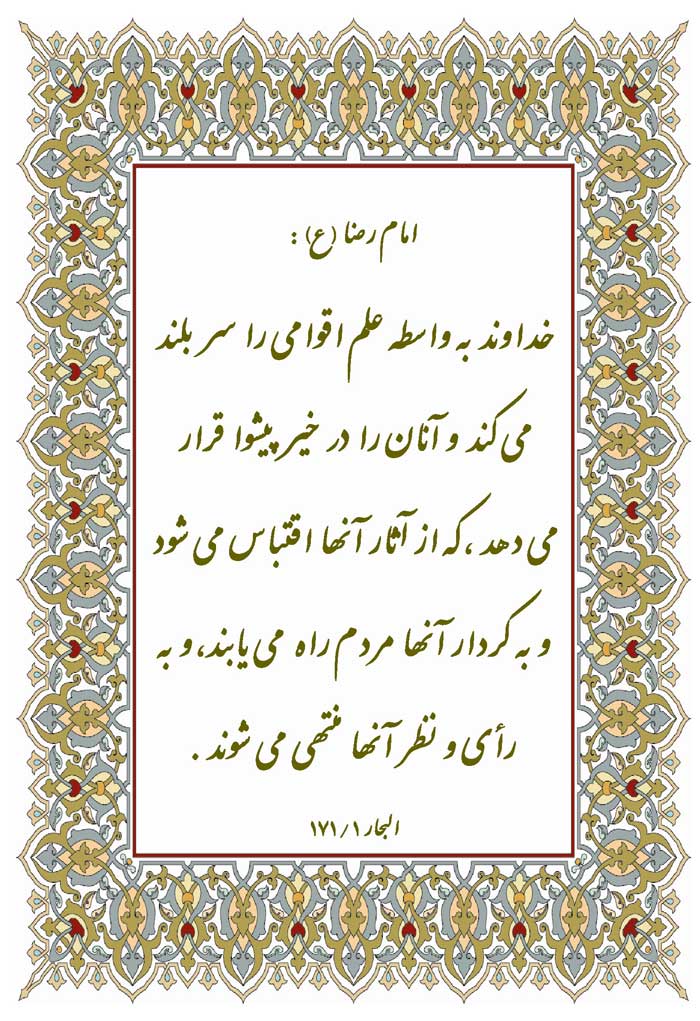 امام رضا (ع) :
خداوند به واسطه علم اقوامی را سر بلند
می کند و آنان را در خیر پیشوا قرار
می دهد ،که از آثار آنها اقتباس می شود
و به کردار آنها مردم راه می یابند، و به
رأی و نظر آنها منتهی می شوند .
البحار ۱ / ۱۷۱